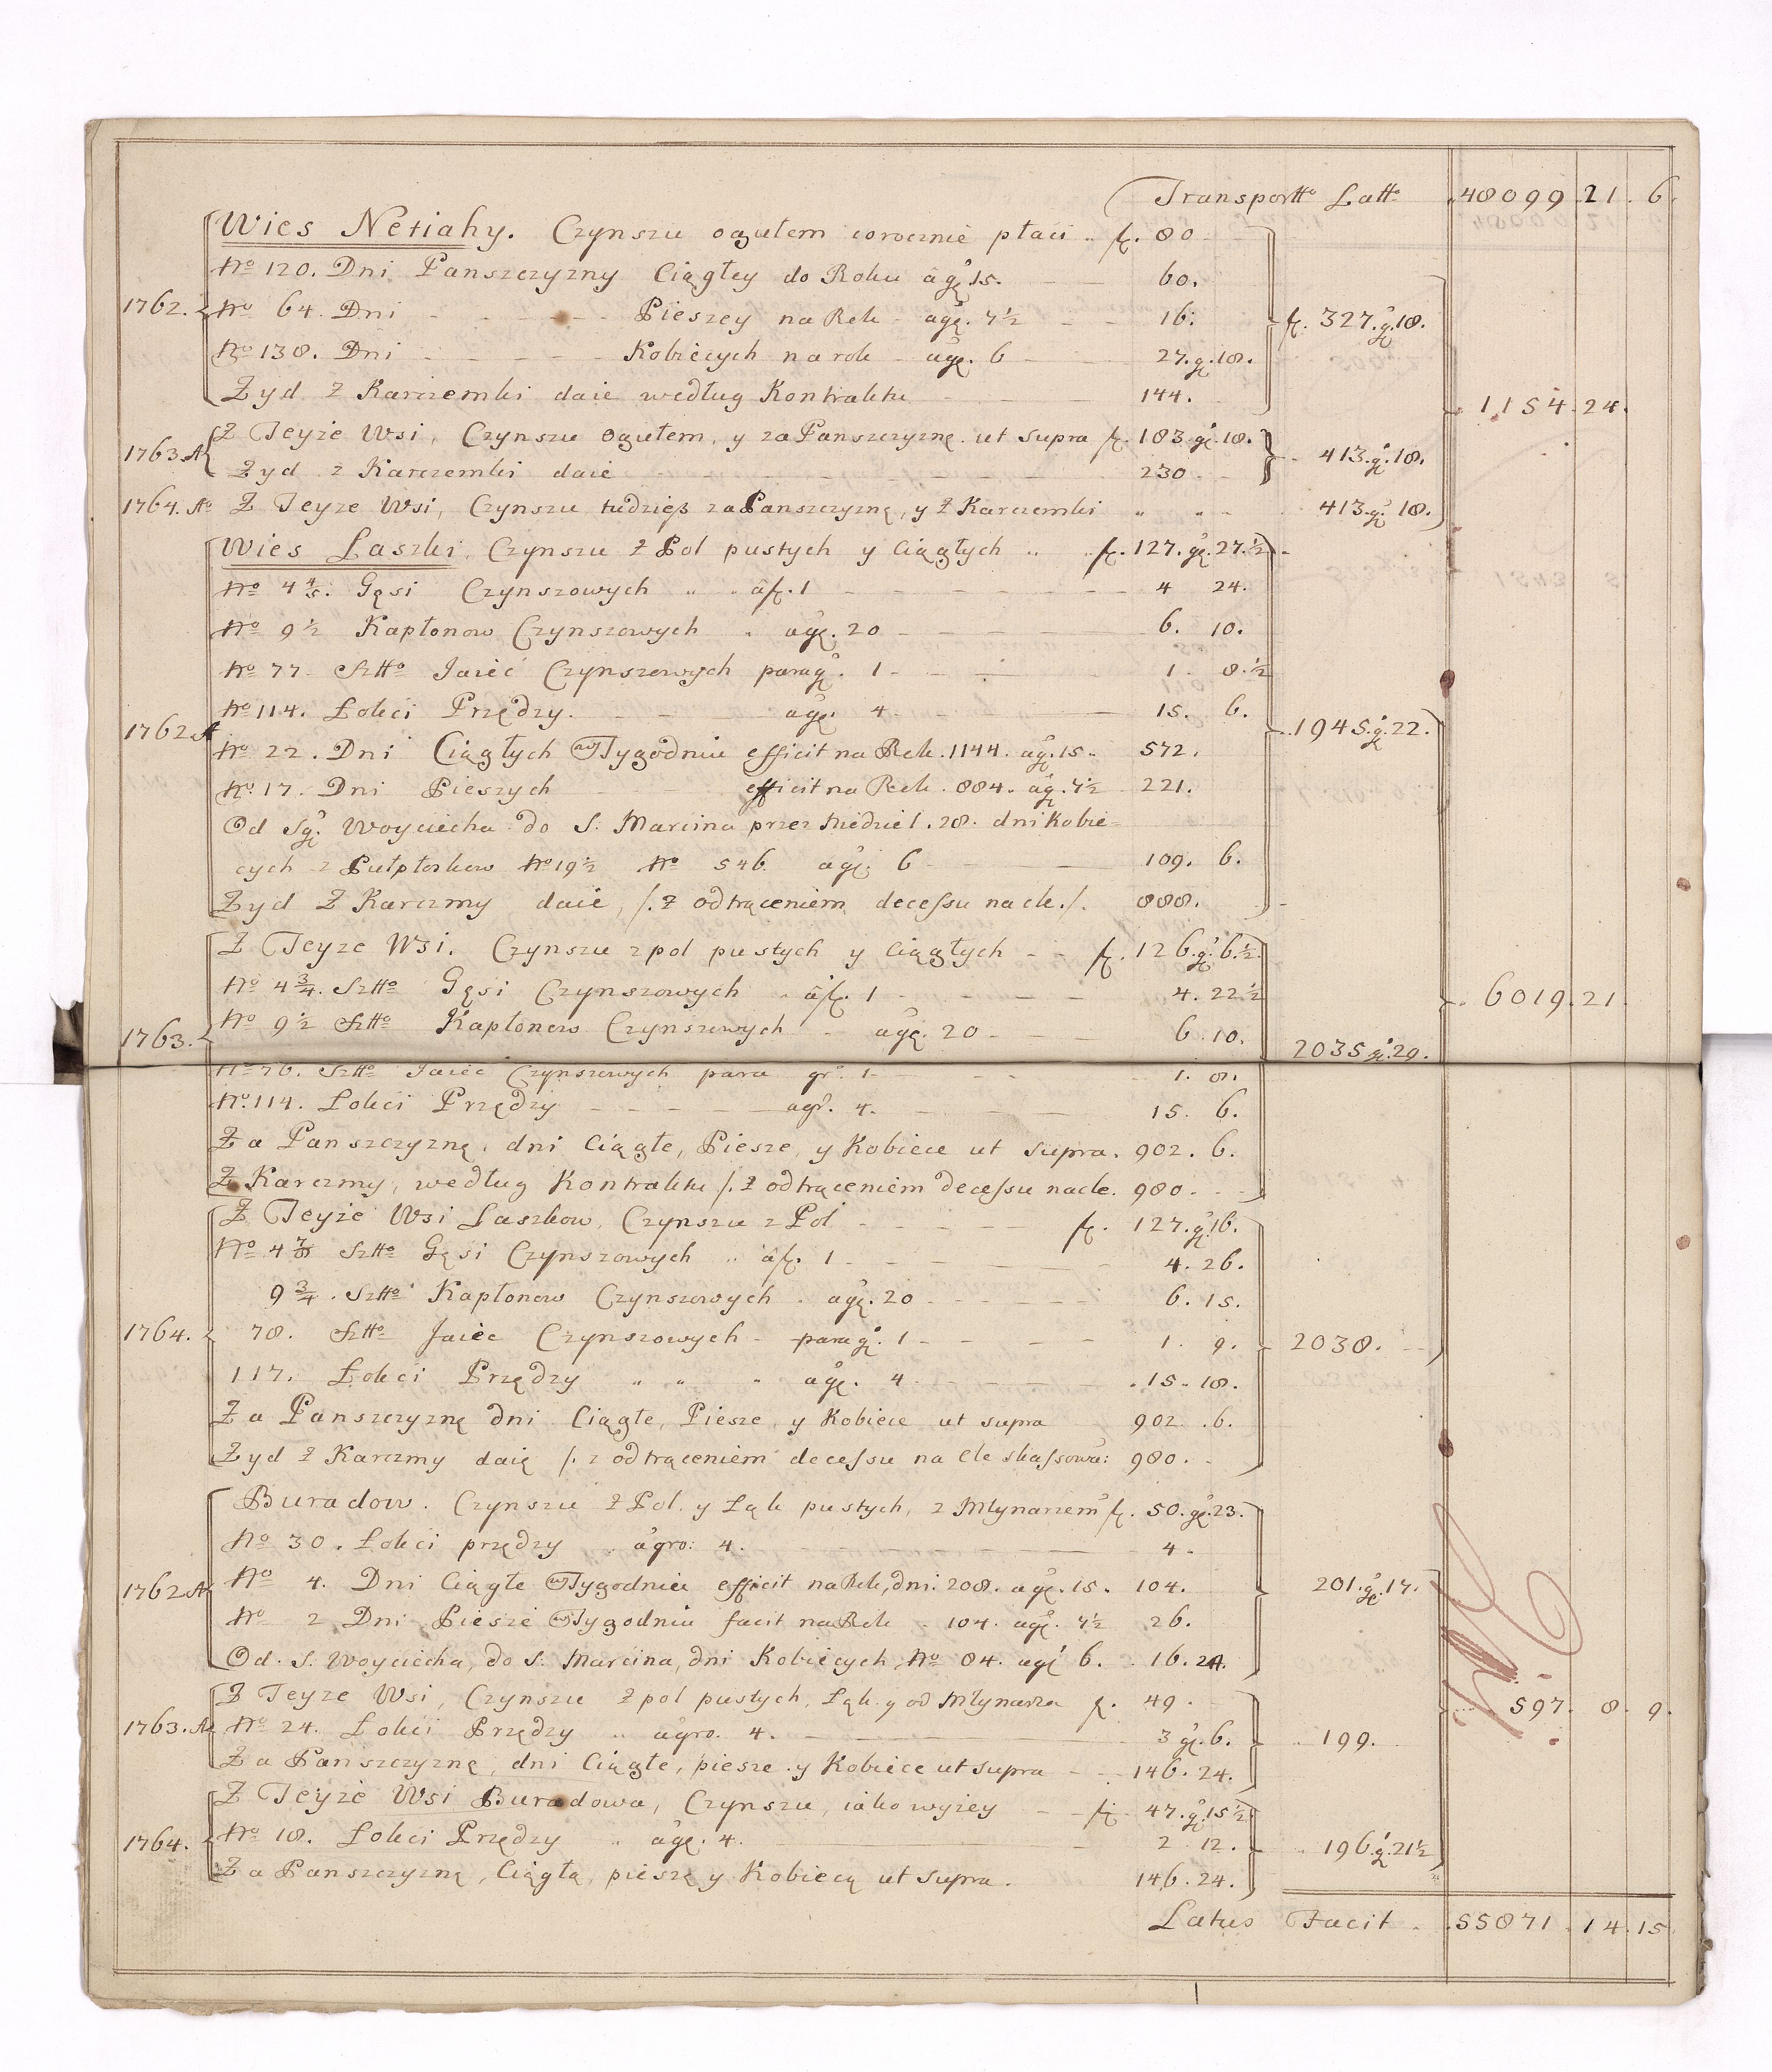 Transportto Latto 48099 21. 6.
Wies Netiahy. Czynszu ogułem corocznie płaci .. fl. 80
No 120. Dni Panszczyzny Ciągłey do Roku a gr. 15. 60.
1762. No 64. Dni - - - Pieszey na Rok agr. 7½ 16. fl. 327. gr. 18.
No 138. Dni - - - Kobiecych na rok agr. 6 27. g. 18.
Zyd z Karczemki daie według Kontraktu 144. 1154. 24.
Z Teyże Wsi, Czynszu Ogułem, y za Panszczyznę. ut supra fl. 183. gr. 18.
1763. Ao Zyd z Karczemki daie 230 413. gr. 18.
1764. Ao Z Teyze Wsi, Czynszu tudzież za Panszczyznę, y z Karczemki " " 413. gr. 18.
Wies Laszki, Czynszu z Pol pustych y Ciągłych .. fl. 127. gr. 27.½
No 4⅘. Gęsi Czynszowych .. afl. 1 4 24.
No 9½ Kapłonow Czynszowych agr. 20 6. 10.
No 77. Sztto Jaiéc Czynszowych paragr. 1 1. 8.½
No 114. Łokci Przędzy. agr. 4 15. 6.
1762 A 1945. gr. 22.
No 22. Dni Ciągłych w Tygodniu efficit na Rok. 1144. agr. 15. 572.
No 17. Dni Pieszych efficit na Rok. 884. agr. 7½ 221.
Od Sgo Woyciecha do S. Marcina przez Niedziel. 28. dni Kobie-
cych z Pułpłorkow No 19½ No 546. agr. 6 109. 6.
Zyd Z Karczmy daie, /. z odtrąceniem decessu na cle./. 888.
Z Teyze Wsi. Czynszu z pol pustych y Ciągłych - - fl. 126. gr. 6.½.
No 4¾. Sztto Gęsi Czynszowych afl. 1 4. 22½ 6019. 21.
No 9½ Sztto Kapłonow Czynszowych agr. 20 6. 10.
1763. 2035 gr. 29.
No 76. Sztto Jaiec Czynszowych para gr. 1 1. 8.
No. 114. Łokci Przędzy agr. 4. 15. 6.
Za Panszczyznę, dni Ciągłe, Piesze, y Kobiece ut supra. 902. 6.
Z Karczmy, według Kontraktu /. z odtrąceniem decessu nacle. 980.
Z Teyże Wsi Laszkow, Czynszu z Pol fl. 127. gr. 16.
No 4⅞ Sztto Gęsi Czynszowych .. afl. 1 4. 26.
9¾. Sztto Kapłonow Czynszowych agr. 20 6. 15.
1764. 78. Sztto Jaiec Czynszowych - paragr. 1 1. 9. 2038.
117. Łokci Przędzy " " " agr. 4 15. 18.
Za Panszczyznę dni Ciągłe, Piesze, y Kobiece ut supra 902. 6.
Zyd z Karczmy daię /. z odtrąceniem decessu na Cle skassowa: 980.
Buradow. Czynszu z Pol. y Łąk pustych, z Młynarzem fl. 50. gr. 23.
No 30. Łokci przędzy agro: 4. 4.
1762 A No 4. Dni Ciągłe w Tygodniu efficit na Rok, dni. 208. agr. 15. 104. 201. gr. 17.
No 2 Dni Piesze w Tygodniu facit na Rok 104. agr. 7½ 26.
Od. S. Woyciecha, do S. Marcina, dni Kobiecych, No 84. agr. 6. 16. 24.
Z Teyze Wsi, Czynszu z pol pustych, Łąk. y od Młynarza fl. 49. 597. 8. 9.
1763. Ao No 24. Łokci Przędzy .. agro. 4. 3 gr. 6. 199.
Za Panszczyznę, dni Ciągłe, piesze. y Kobiece ut supra 146. 24.
Z Teyże Wsi Buradowa, Czynszu, iako wyżey fl. 47. gr. 15½
1764. No 18. Łokci Przędzy agr. 4. 2 12. 196. gr. 21½
Za Panszczyznę, Ciągłą, pieszą y Kobiecą ut supra. 146. 24.
Latus Facit. 55871. 14. 15